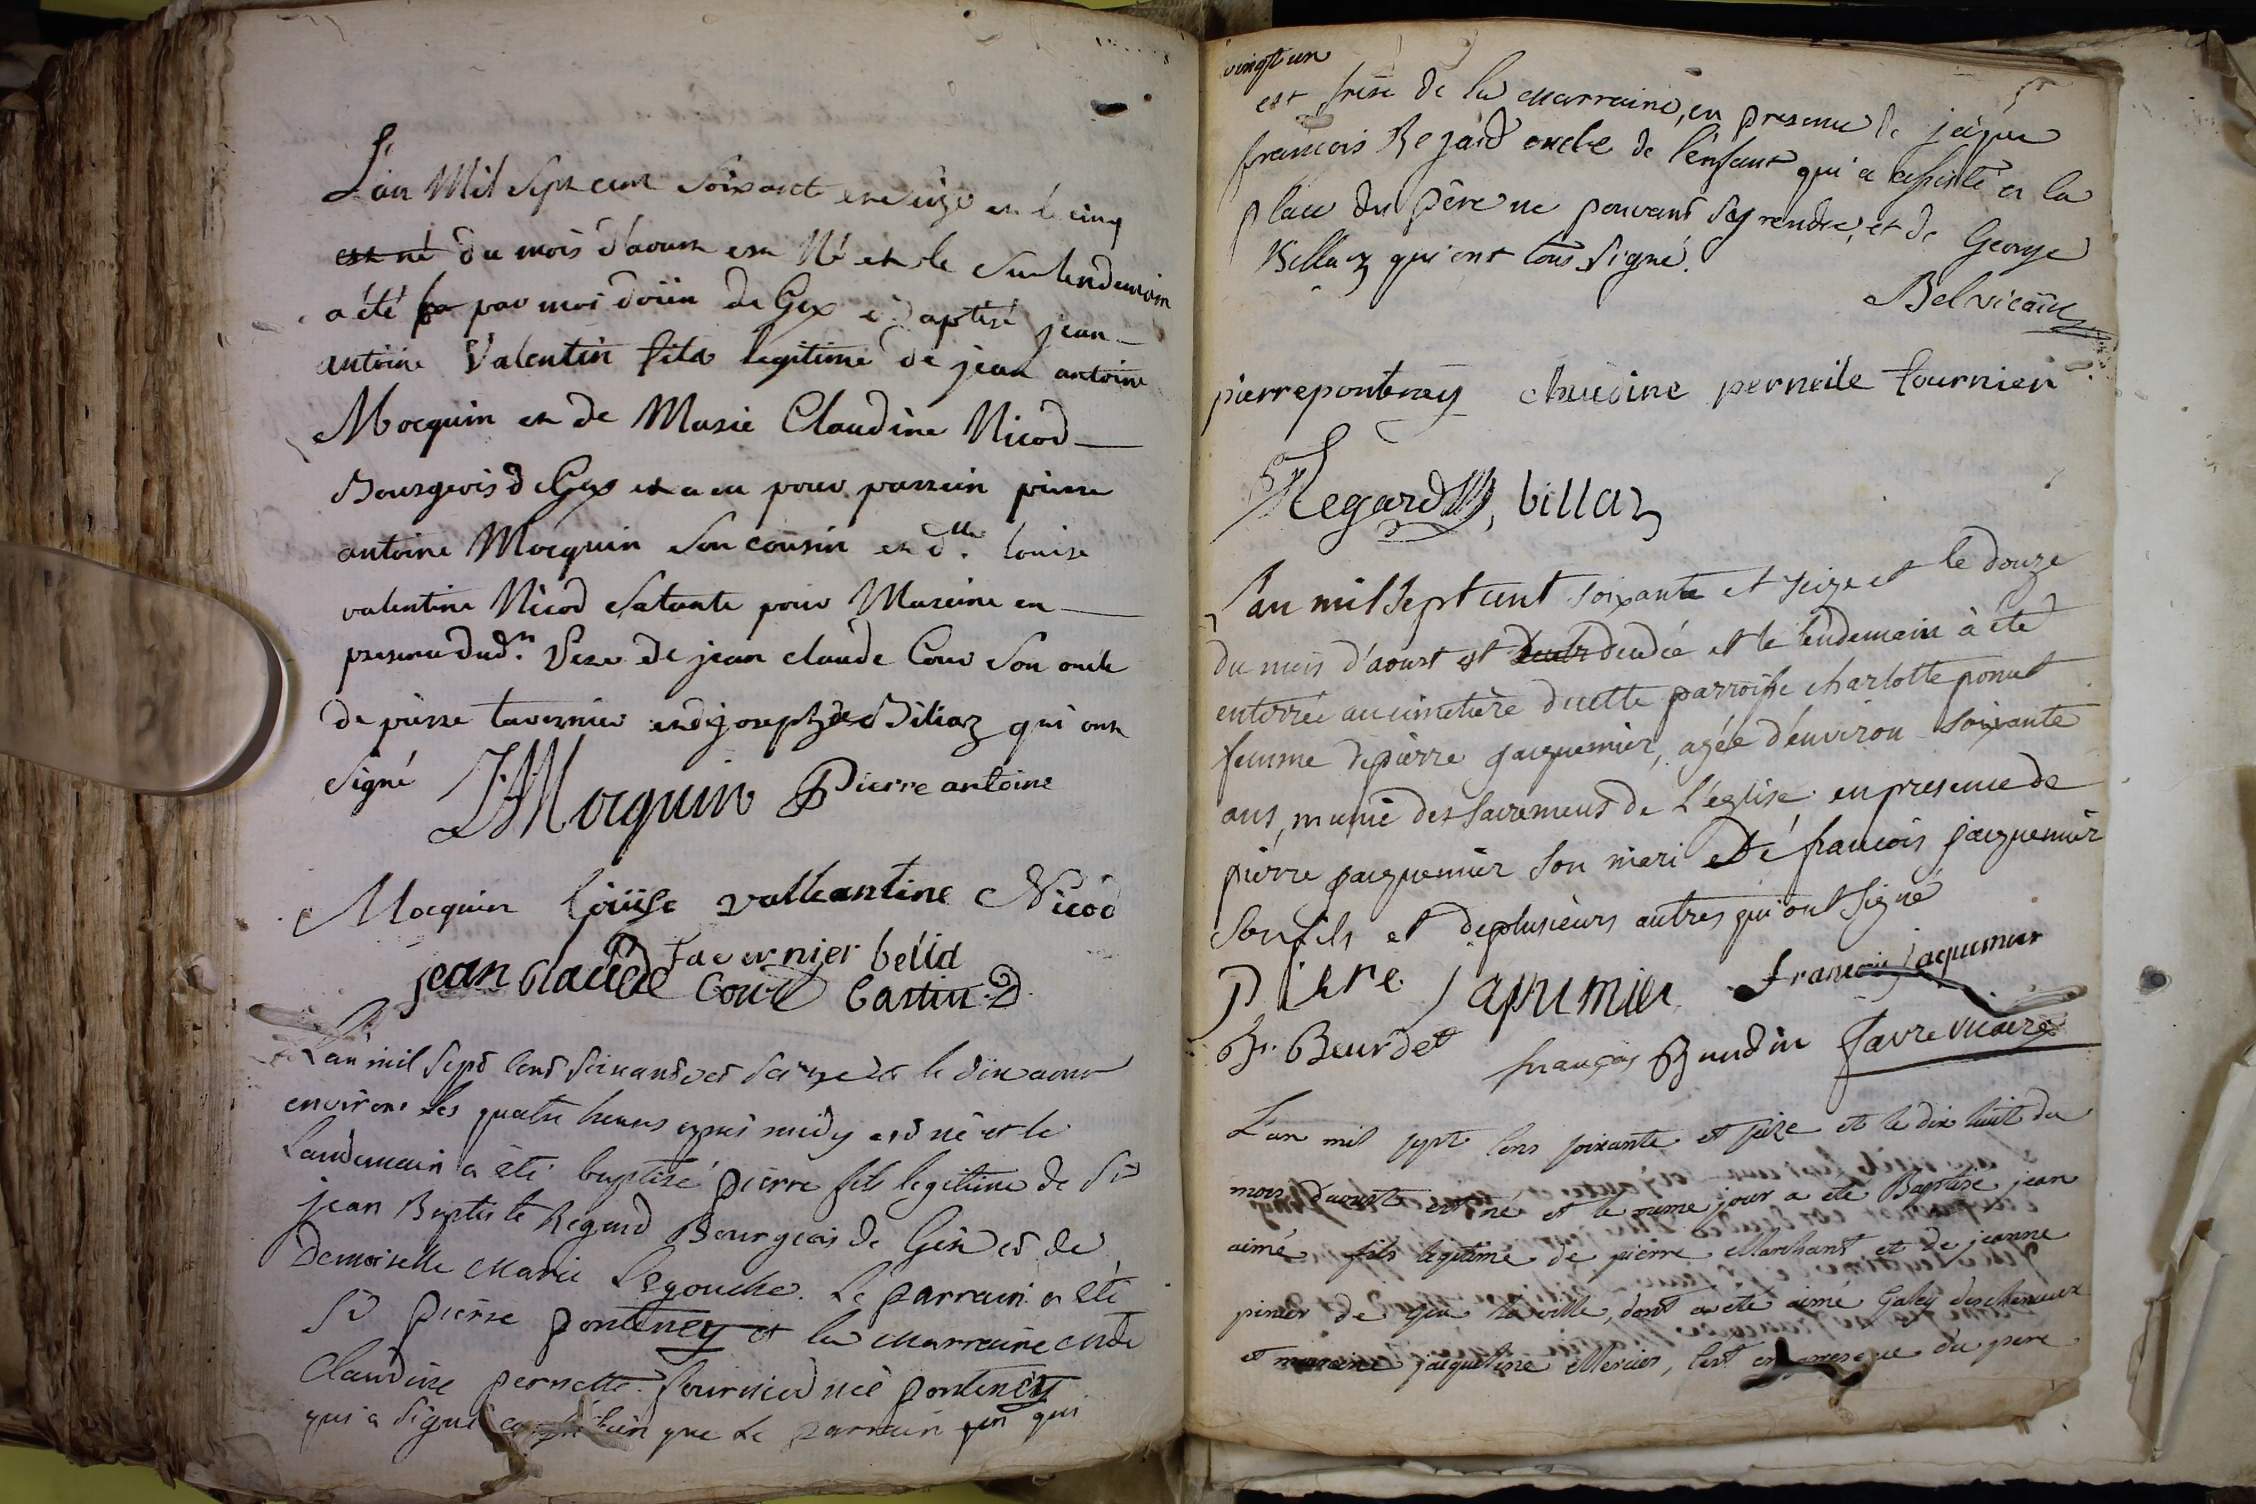 L'an Mil sept cent soixante et seize et le cinq
est né du mois d'aoust est Né et le surlendemain
a été par moi doïen de Gex baptisé jean
antoine Valentin fils legitime de jean antoine
Mocquin et de Marie Claudine Nicod
Bourgeois de Gex et a eu pour parrein pierre
antoine Mocquin son cousin et dlle. louise
valentine Nicod sa tante pour Mareine en
presence dud.t Pere de jean claude Cour son oncle
de pierre tavernier et de joseph Biliaz qui ont
signé
JMocquin Pierre antoine
Mocquin loüise valleantine Nicod
tavernier belia
jean claude Cour Castin D
L'an mil sept cent soixante et seize et le dix aout
environ les quatre heures apres midy est né et le
landemain a été baptisé pierre fils legitime de Sr
jean Baptiste Regard Bourgeois de Gex et de
Demoiselle Marie Legouche. Le parrain a été
Sr pierre ponteney et la marraine
Claudine pernette fournier née ponteney
qui a signé bien que le parrain qui
vingt un
est frere de la marraine, en presence de jaque
francois Regard oncle de l'enfant qui a assisté a la
place du père ne pouvant s'y rendre, et de George
Billaz qui ont tous signé.
Bel vicaire
pierre ponteney claudine perneite fournier
Regard, billaz
L'an mil sept cent soixante et seize et le douze
du mois d'aoust est décédée et le lendemain à été
enterrée au cimetière de cette parroisse charlotte ponnet
femme de pierre jacquemier, agée d'environ soixante
ans, munie des sacremens de L'église; en presence de
pierre jacquemier son mari et de francois jacquemier
son fils et de plusieurs autres qui ont signé
Piere Jaqumier francois jaqumier
Fr. Beurdet françois Baudin favre vicaire
L'an mil sept cens soixante et seize et le dix huit du
mois d'aoust est né et le même jour a été Baptisé jean
aimé fils legitime de pierre Marchant et de jeanne
pinier de Gex la ville, dont a été aimé Galey des cheneux
et maraine jaqueline Mercier, l'est en presence du pere